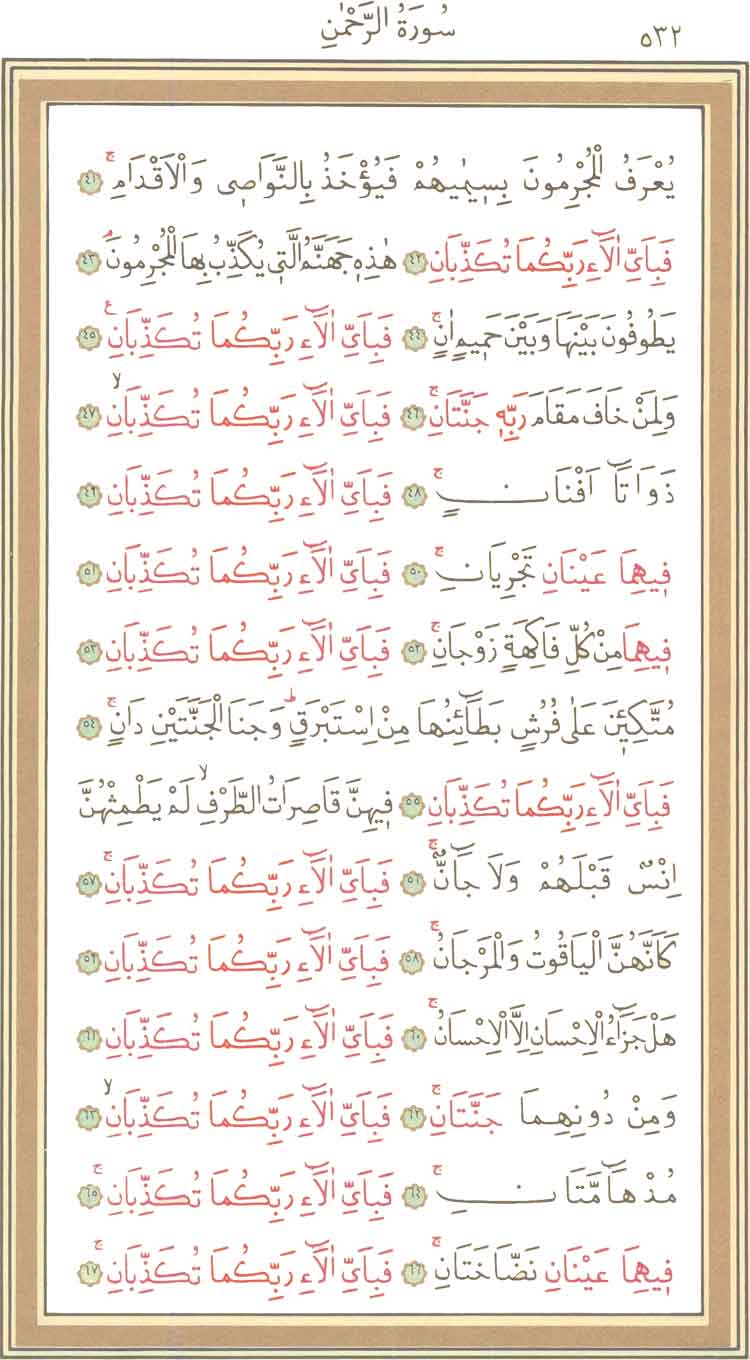 سُورَةُ الرَّحْمٰنِ ٥٣٢
يُعْرَفُ الْمُجْرِمُونَ بِس۪يمٰيهُمْ فَيُؤْخَذُ بِالنَّوَاص۪ي وَالْاَقْدَامِۚ ﴿٤١﴾
فَبِاَيِّ اٰلَٓاءِ رَبِّكُمَا تُكَذِّبَانِ ﴿٤٢﴾ هٰذِه۪ جَهَنَّمُ الَّت۪ي يُكَذِّبُ بِهَا الْمُجْرِمُونَۢ ﴿٤٣﴾
يَطُوفُونَ بَيْنَهَا وَبَيْنَ حَم۪يمٍ اٰنٍۚ ﴿٤٤﴾ فَبِاَيِّ اٰلَٓاءِ رَبِّكُمَا تُكَذِّبَانِ۟ ﴿٤٥﴾
وَلِمَنْ خَافَ مَقَامَ رَبِّه۪ جَنَّتَانِۚ ﴿٤٦﴾ فَبِاَيِّ اٰلَٓاءِ رَبِّكُمَا تُكَذِّبَانِۙ ﴿٤٧﴾
ذَوَاتَٓا اَفْنَانٍۚ ﴿٤٨﴾ فَبِاَيِّ اٰلَٓاءِ رَبِّكُمَا تُكَذِّبَانِ ﴿٤٩﴾
ف۪يهِمَا عَيْنَانِ تَجْرِيَانِۚ ﴿٥٠﴾ فَبِاَيِّ اٰلَٓاءِ رَبِّكُمَا تُكَذِّبَانِ ﴿٥١﴾
ف۪يهِمَا مِنْ كُلِّ فَاكِهَةٍ زَوْجَانِۚ ﴿٥٢﴾ فَبِاَيِّ اٰلَٓاءِ رَبِّكُمَا تُكَذِّبَانِ ﴿٥٣﴾
مُتَّكِـ۪ٔينَ عَلٰى فُرُشٍ بَطَٓائِنُهَا مِنْ اِسْتَبْرَقٍۜ وَجَنَا الْجَنَّتَيْنِ دَانٍۚ ﴿٥٤﴾
فَبِاَيِّ اٰلَٓاءِ رَبِّكُمَا تُكَذِّبَانِ ﴿٥٥﴾ ف۪يهِنَّ قَاصِرَاتُ الطَّرْفِۙ لَمْ يَطْمِثْهُنَّ
اِنْسٌ قَبْلَهُمْ وَلَا جَٓانٌّۚ ﴿٥٦﴾ فَبِاَيِّ اٰلَٓاءِ رَبِّكُمَا تُكَذِّبَانِۚ ﴿٥٧﴾
كَاَنَّهُنَّ الْيَاقُوتُ وَالْمَرْجَانُۚ ﴿٥٨﴾ فَبِاَيِّ اٰلَٓاءِ رَبِّكُمَا تُكَذِّبَانِ ﴿٥٩﴾
هَلْ جَزَٓاءُ الْاِحْسَانِ اِلَّا الْاِحْسَانُۚ ﴿٦٠﴾ فَبِاَيِّ اٰلَٓاءِ رَبِّكُمَا تُكَذِّبَانِ ﴿٦١﴾
وَمِنْ دُونِهِمَا جَنَّتَانِۚ ﴿٦٢﴾ فَبِاَيِّ اٰلَٓاءِ رَبِّكُمَا تُكَذِّبَانِۙ ﴿٦٣﴾
مُدْهَٓامَّتَانِۚ ﴿٦٤﴾ فَبِاَيِّ اٰلَٓاءِ رَبِّكُمَا تُكَذِّبَانِۚ ﴿٦٥﴾
ف۪يهِمَا عَيْنَانِ نَضَّاخَتَانِۚ ﴿٦٦﴾ فَبِاَيِّ اٰلَٓاءِ رَبِّكُمَا تُكَذِّبَانِۚ ﴿٦٧﴾